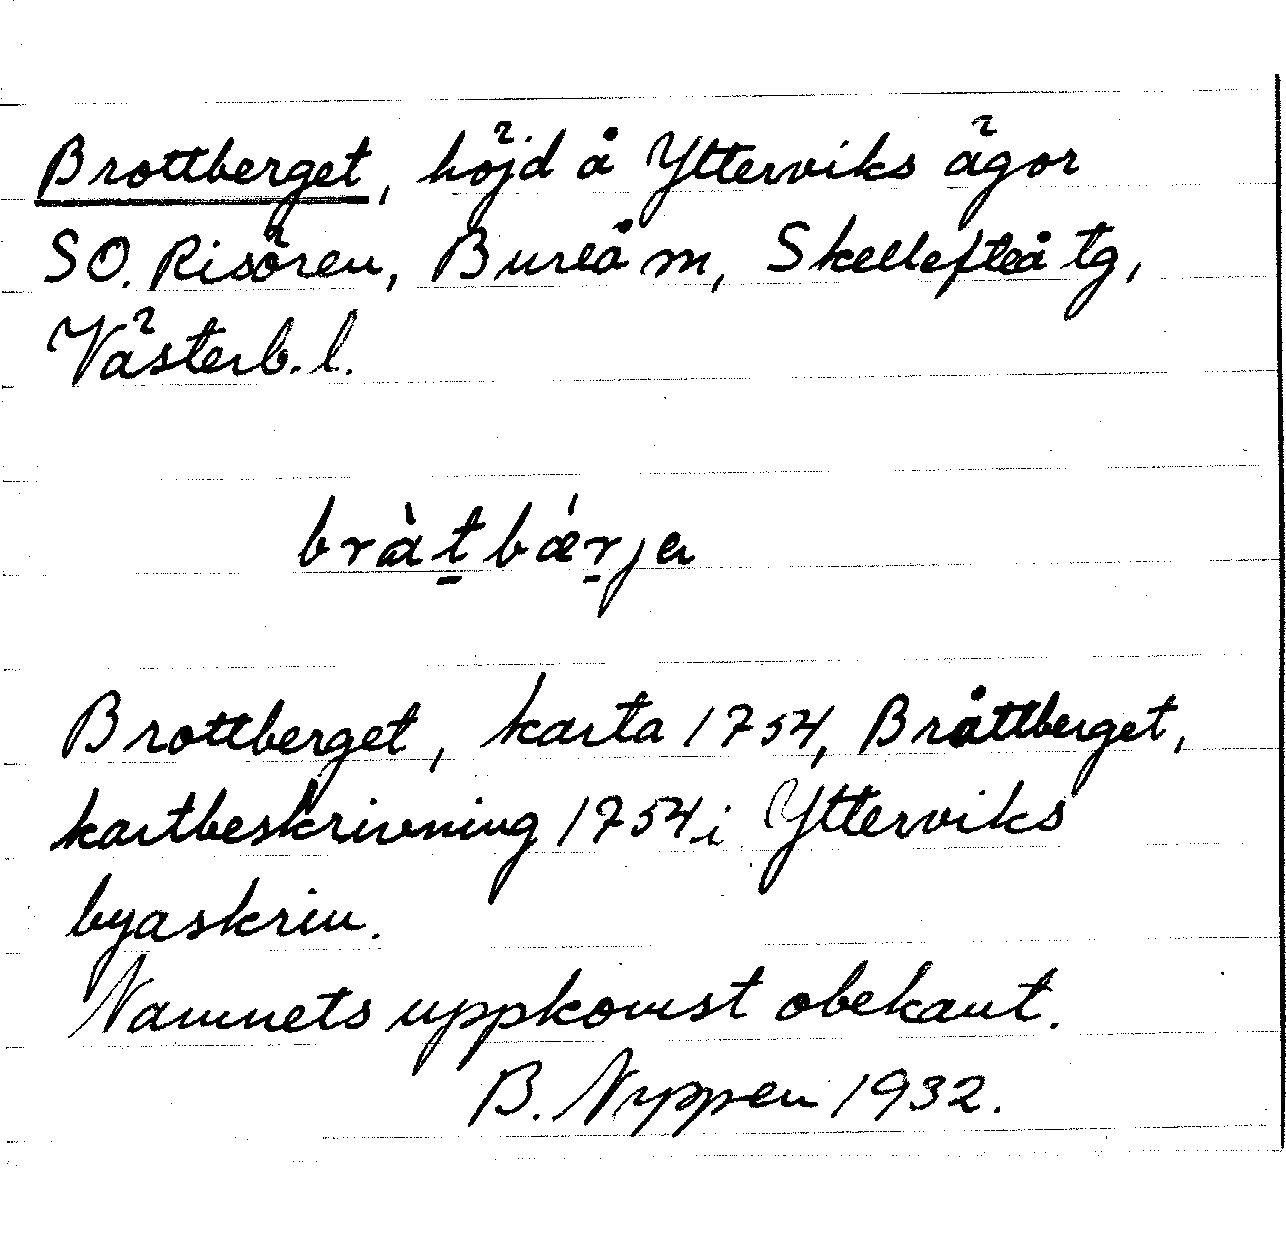 Brottberget, höjd å Ytterviks ägor
SO. Risören, Bureå m, Skellefteå tg,
Västerb. l.
bràt̠bǽr̠ja
Brottberget, karta 1754, Bråttberget,
kartbeskrivning 1754 i Ytterviks
byaskrin.
Namnets uppkomst obekant.
B. Nyppen 1932.